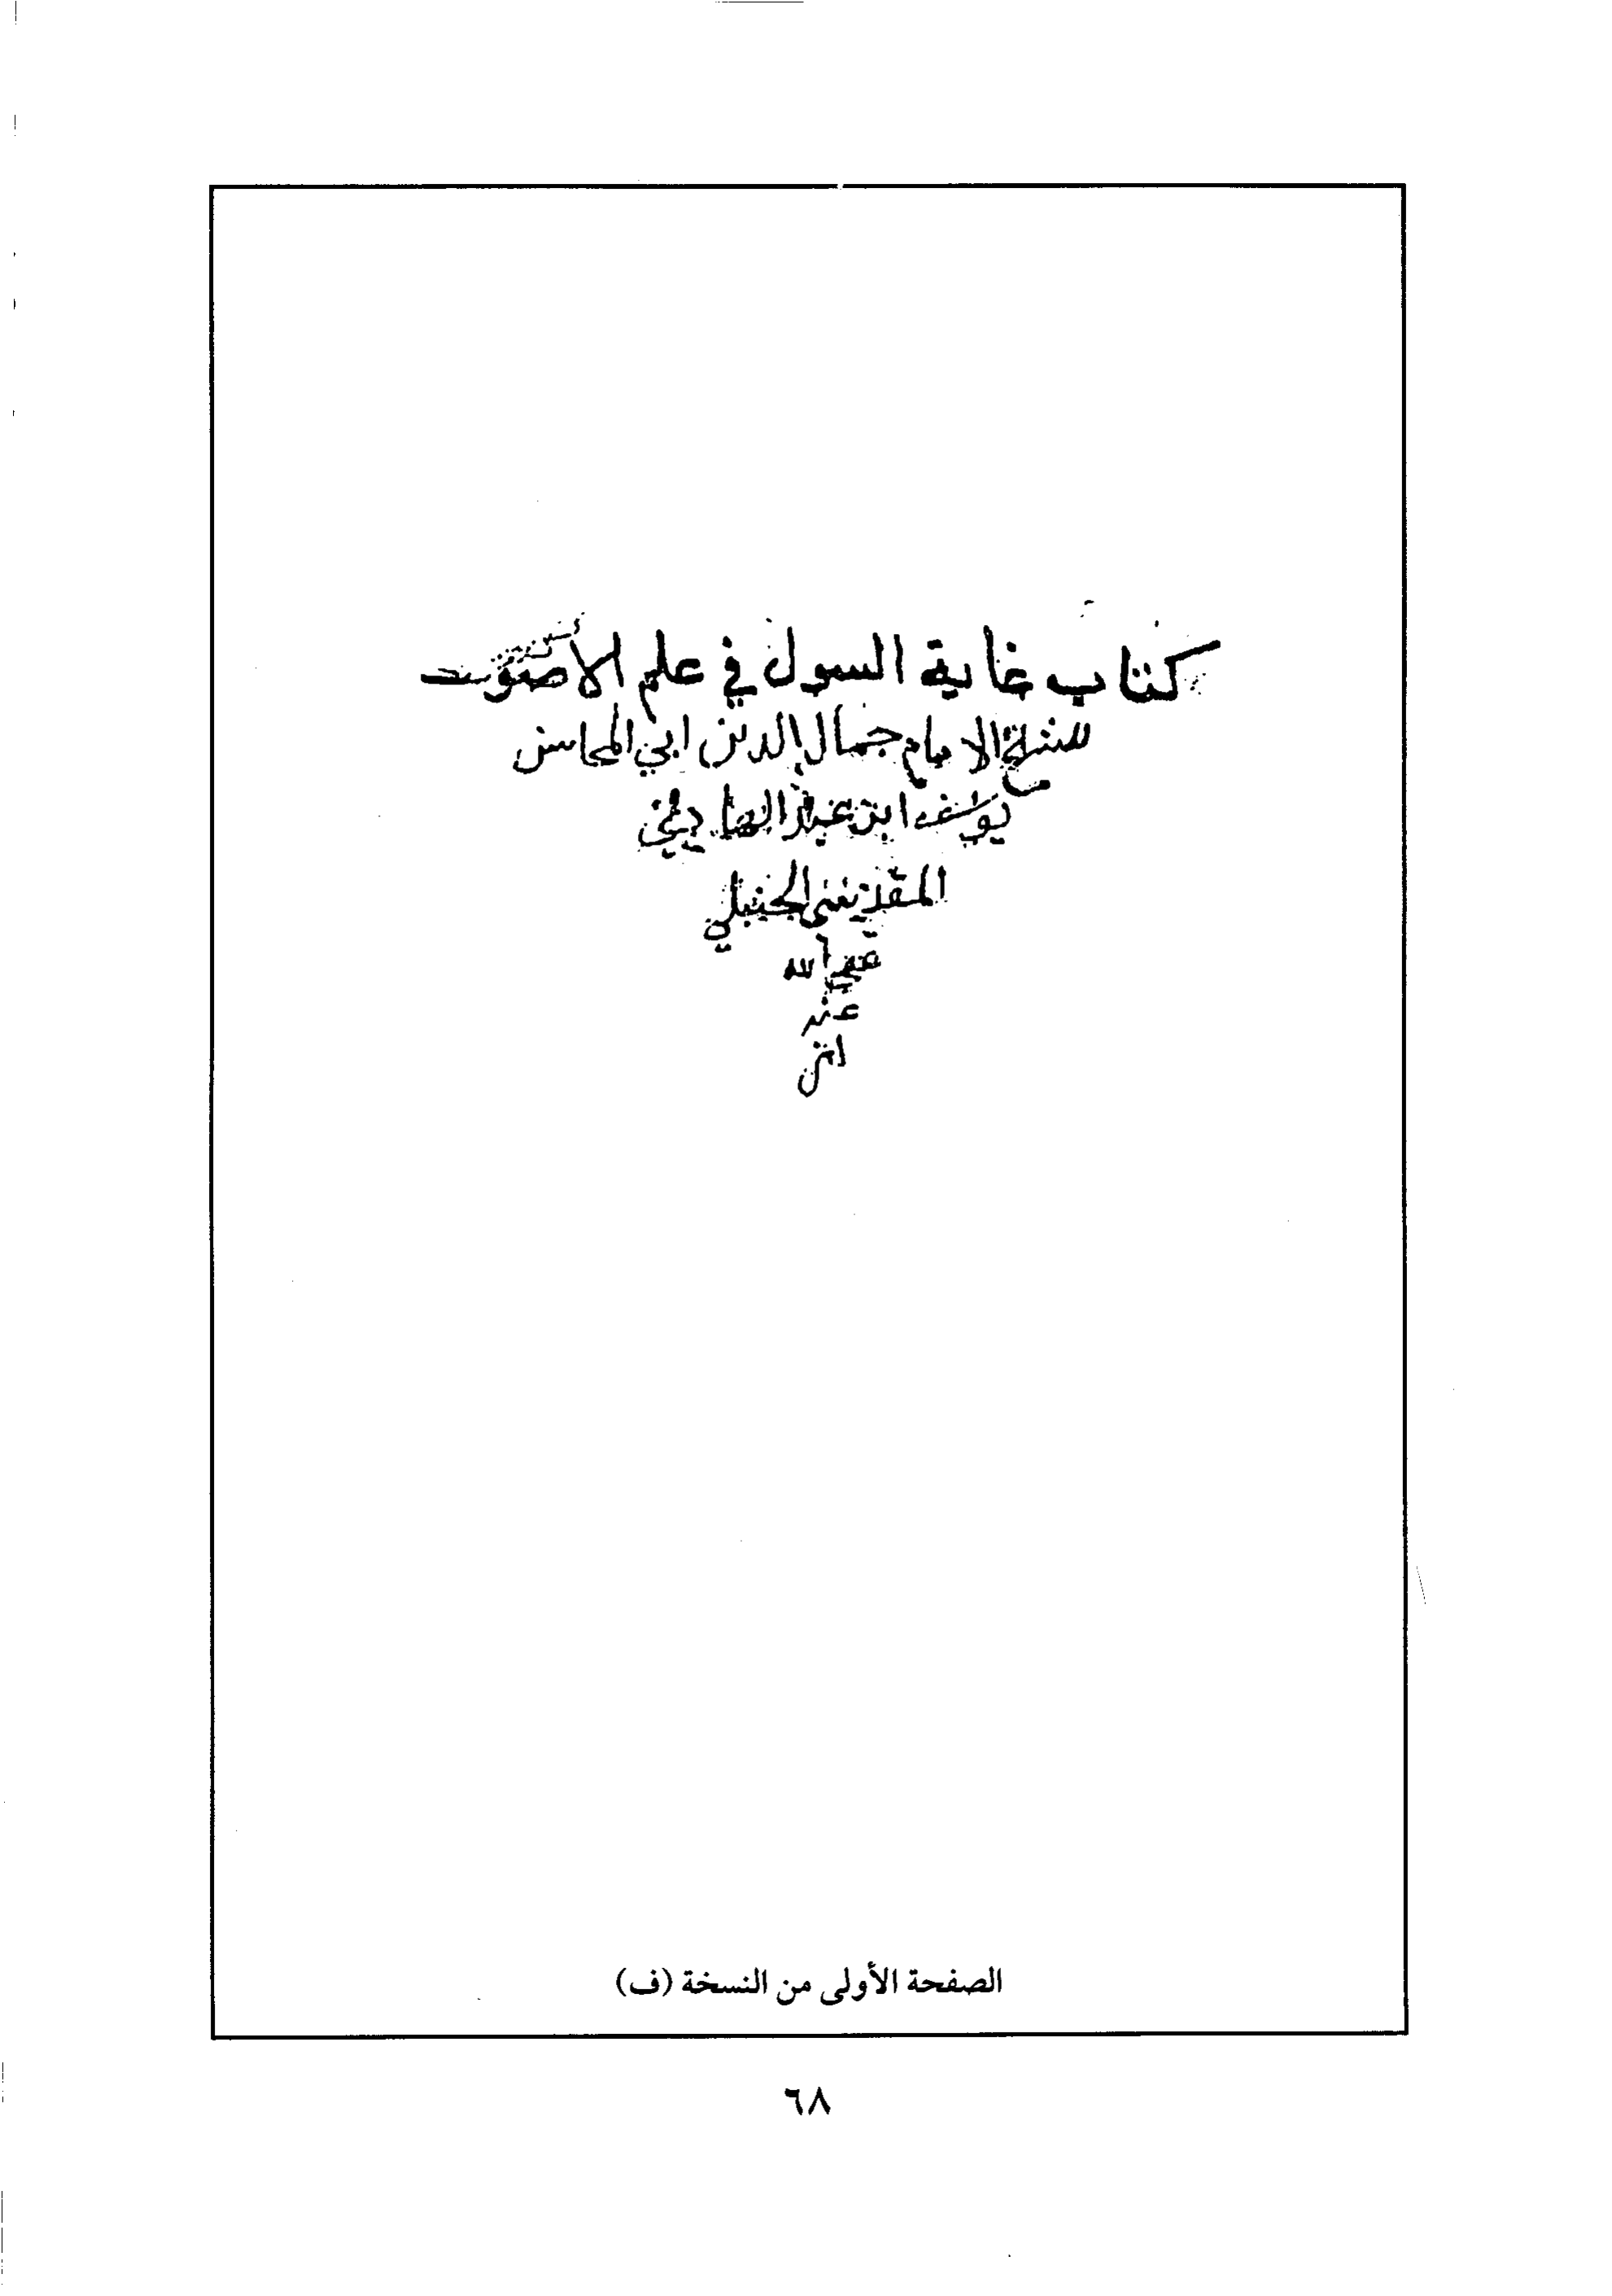 كتاب غاية السول في علم الأصول
للشيخ الامام جمال الدين ابي المحاسن
يوسف ابن عبد الهادي
المقدسي الحنبلي
عفى الله
عنه
امين
الصفحة الأولى من النسخة (ف)
٦٨